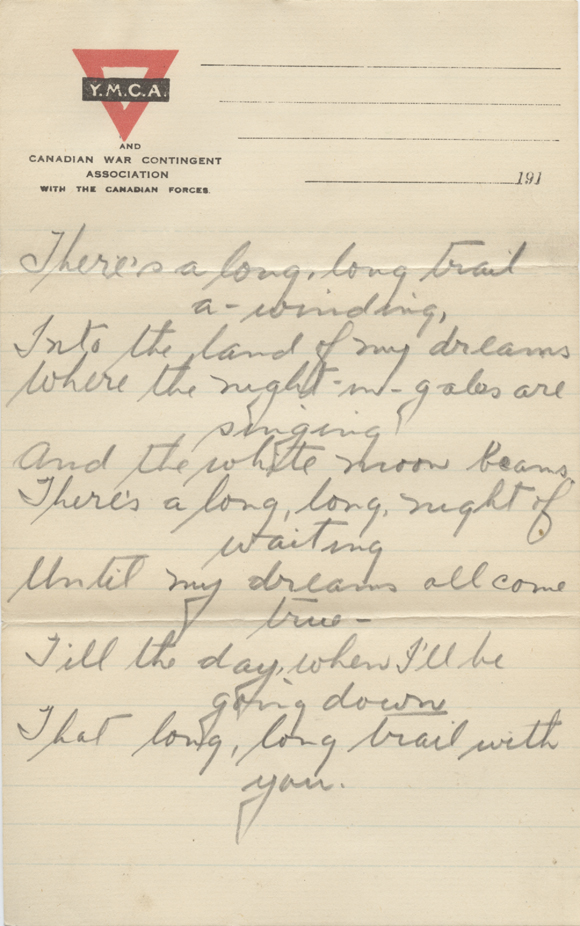 Y.M.C.A.
AND
CANADIAN WAR CONTINGENT
ASSOCIATION
WITH THE CANADIAN FORCES.
191
There's a long, long trail
a-winding,
Into the land of my dreams
Where the night-in-gales are
singing
And the white moon beams.
There's a long, long, night of
waiting
Until my dreams all come
true-
Till the day, when I'll be
going down
That long, long trail with
you.